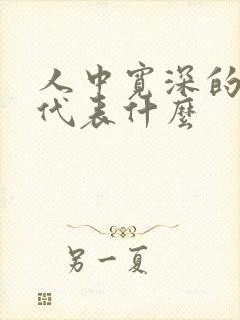 人中宽深的
代表什麼
另一夏